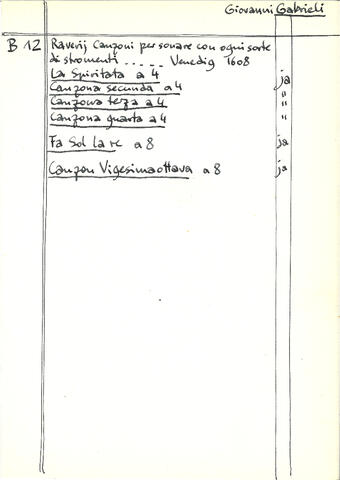 Giovanni Gabrieli
B 12 Raverij Canzoni per sonare con ogni sorte
di stromenti . . . . . Venedig 1608
La Spiritata a 4 ja
Canzona secunda a 4 "
Canzona terza a 4 "
Canzona quarta a 4 "
Fa Sol la re a 8 ja
Canzon Vigesimaottava a 8 ja